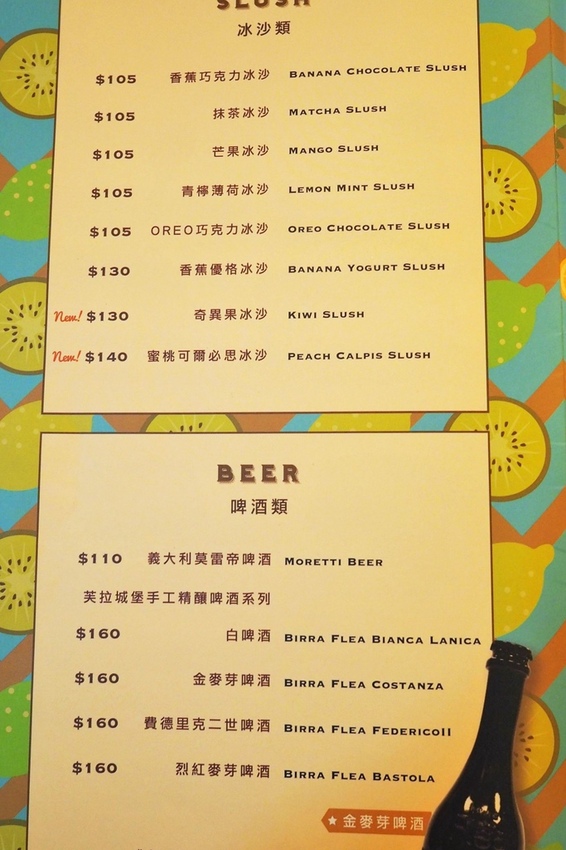 SLUSH
冰沙類
$105 香蕉巧克力冰沙 BANANA CHOCOLATE SLUSH
$105 抹茶冰沙 MATCHA SLUSH
$105 芒果冰沙 MANGO SLUSH
$105 青檸薄荷冰沙 LEMON MINT SLUSH
$105 OREO巧克力冰沙 OREO CHOCOLATE SLUSH
$130 香蕉優格冰沙 BANANA YOGURT SLUSH
New! $130 奇異果冰沙 KIWI SLUSH
New! $140 蜜桃可爾必思冰沙 PEACH CALPIS SLUSH
BEER
啤酒類
$110 義大利莫雷帝啤酒 MORETTI BEER
芙拉城堡手工精釀啤酒系列
$160 白啤酒 BIRRA FLEA BIANCA LANICA
$160 金麥芽啤酒 BIRRA FLEA COSTANZA
$160 費德里克二世啤酒 BIRRA FLEA FEDERICOII
$160 烈紅麥芽啤酒 BIRRA FLEA BASTOLA
★金麥芽啤酒